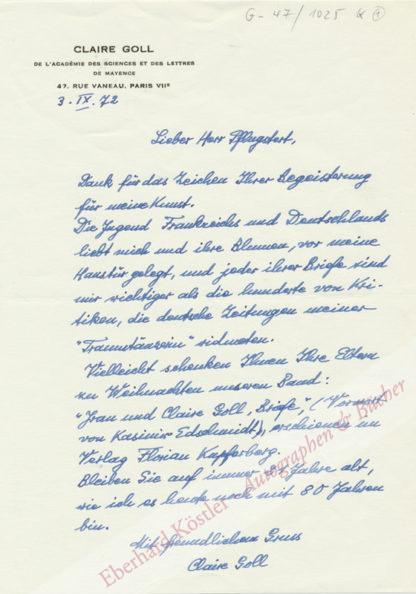 G-47/1025
CLAIRE GOLL
DE L'ACADÉMIE DES SCIENCES ET DES LETTRES
DE MAYENCE
47, RUE VANEAU, PARIS VIIe
3. IX. 72
Lieber Herr Pflugstert,
Dank für das Zeichen Ihrer Begeisterung
für meine Kunst.
Die Jugend Frankreichs und Deutschlands
liebt mich und ihre Blumen, vor meine
Haustür gelegt, und jeder ihrer Briefe sind
mir wichtiger als die hunderte von Kri-
tiken, die deutsche Zeitungen meiner
"Traumtänzerin" widmeten.
Vielleicht schenken Ihnen Ihre Eltern
zu Weihnachten unseren Band:
"Ivan und Claire Goll, Briefe", (Vorwort
von Kasimir Edschmidt), erschienen im
Verlag Florian Kupferberg.
Bleiben Sie auf immer Jahre alt,
wie ich es heute noch mit 80 Jahren
bin.
Mit freundlichem Gruss
Claire Goll
Eberhard Köstler Autographen & Bücher